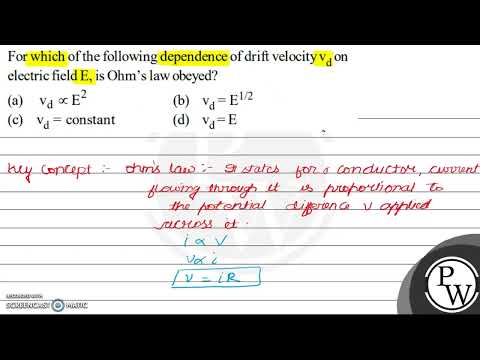 For which of the following dependence of drift velocity v_d on
electric field E, is Ohm's law obeyed?
(a) v_d ∝ E² (b) v_d = E^1/2
(c) v_d = constant (d) v_d = E
Key concept :- Ohm's law :- It states for a conductor, current
flowing through it is proportional to
the potential difference V applied
across it.
i ∝ V
V ∝ i
V = iR
PW
RECORDED WITH
SCREENCAST MATIC